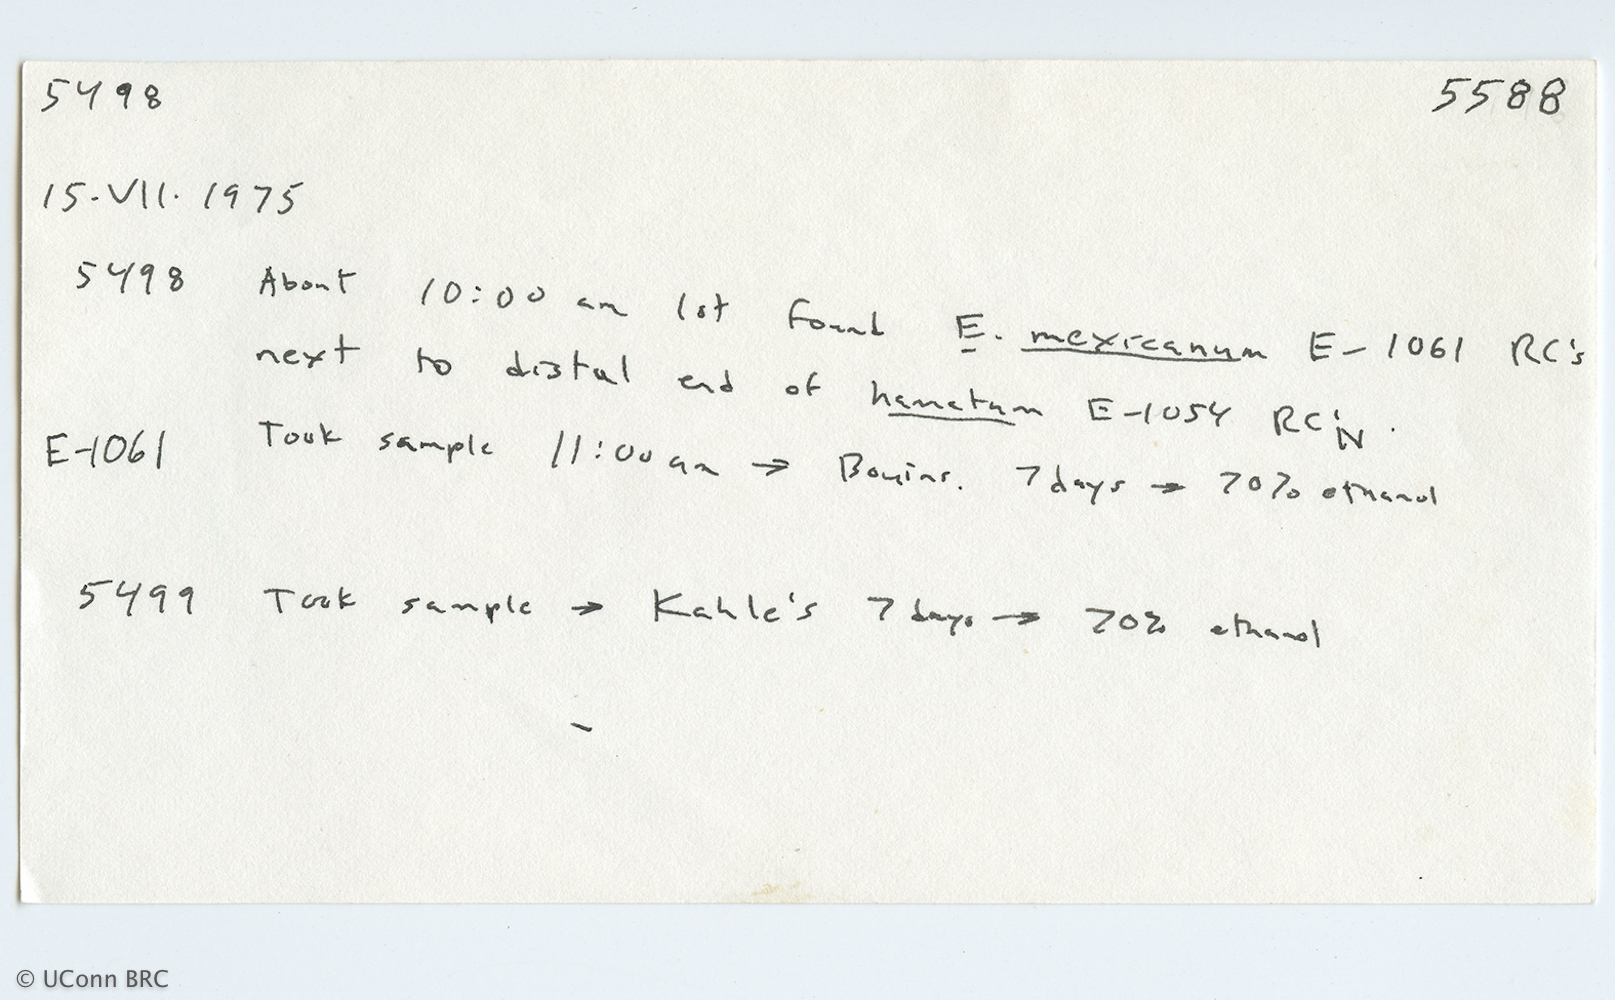 5498 5588
15.VII.1975
5498 About 10:00 am 1st found E. mexicanum E-1061 RC's
next to distal end of hamatum E-1054 RC'N.
E-1061 Took sample 11:00 am → Bouins. 7 days → 70% ethanol
5499 Took sample → Kahle's 7 days → 70% ethanol
© UConn BRC